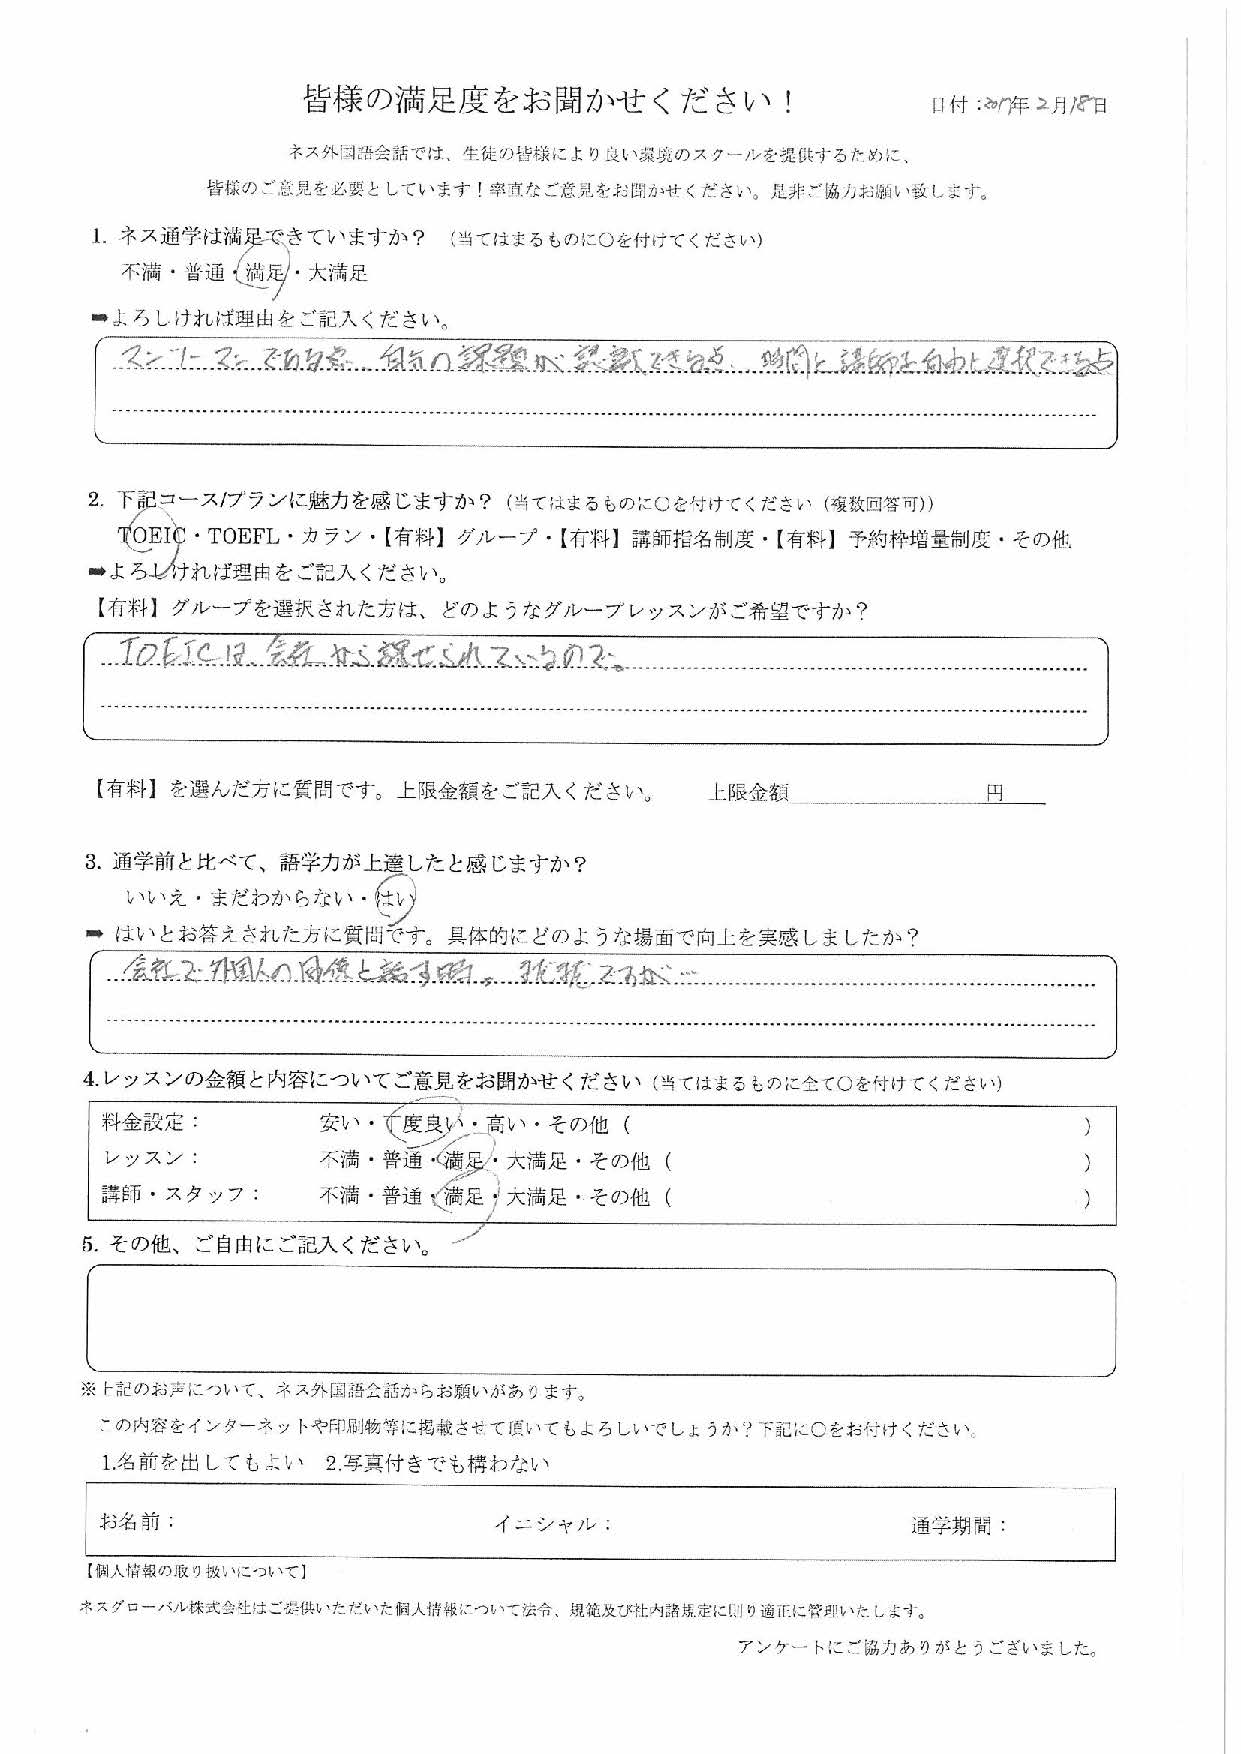 皆様の満足度をお聞かせください！
日付：2017年2月18日
ネス外国語会話では、生徒の皆様により良い環境のスクールを提供するために、
皆様のご意見を必要としています！率直なご意見をお聞かせください。是非ご協力お願い致します。
1. ネス通学は満足できていますか？（当てはまるものに〇を付けてください）
不満・普通・満足・大満足
➡よろしければ理由をご記入ください。
マンツーマンである点、自分の課題が認識できる点、時間と講師を自由に選択できる点
2. 下記コース/プランに魅力を感じますか？（当てはまるものに〇を付けてください（複数回答可））
TOEIC・TOEFL・カラン・【有料】グループ・【有料】講師指名制度・【有料】予約枠増量制度・その他
➡よろしければ理由をご記入ください。
【有料】グループを選択された方は、どのようなグループレッスンがご希望ですか？
TOEICは、会社から課せられているので。
【有料】を選んだ方に質問です。上限金額をご記入ください。　上限金額　円
3. 通学前と比べて、語学力が上達したと感じますか？
いいえ・まだわからない・はい
➡ はいとお答えされた方に質問です。具体的にどのような場面で向上を実感しましたか？
会社で外国人の同僚と話す時。ですが…
4.レッスンの金額と内容についてご意見をお聞かせください（当てはまるものに全て〇を付けてください）
料金設定：　安い・丁度良い・高い・その他（　）
レッスン：　不満・普通・満足・大満足・その他（　）
講師・スタッフ：　不満・普通・満足・大満足・その他（　）
5. その他、ご自由にご記入ください。
※上記のお声について、ネス外国語会話からお願いがあります。
この内容をインターネットや印刷物等に掲載させて頂いてもよろしいでしょうか？下記に〇をお付けください。
1.名前を出してもよい　2.写真付きでも構わない
お名前：　イニシャル：　通学期間：
【個人情報の取り扱いについて】
ネスグローバル株式会社はご提供いただいた個人情報について法令、規範及び社内諸規定に則り適正に管理いたします。
アンケートにご協力ありがとうございました。